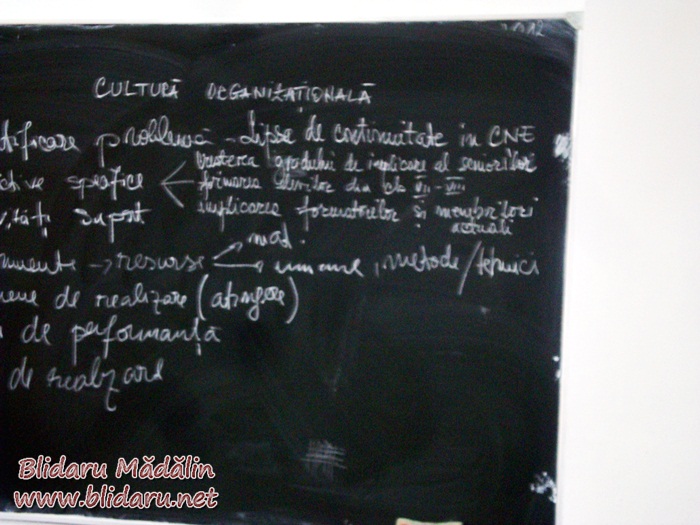 CULTURĂ ORGANIZAȚIONALĂ
tificare problemă - lipsa de continuitate în CNE
creșterea gradului de implicare al seniorilor
ctive specifice formarea elevilor din cls VII - VIII
vități suport implicarea formatorilor și membrilor
actuali
mat.
umente → resurse → umane, metode/tehnici
mene de realizare (atingere)
i de performanță
de realizare
Blidaru Mădălin
www.blidaru.net